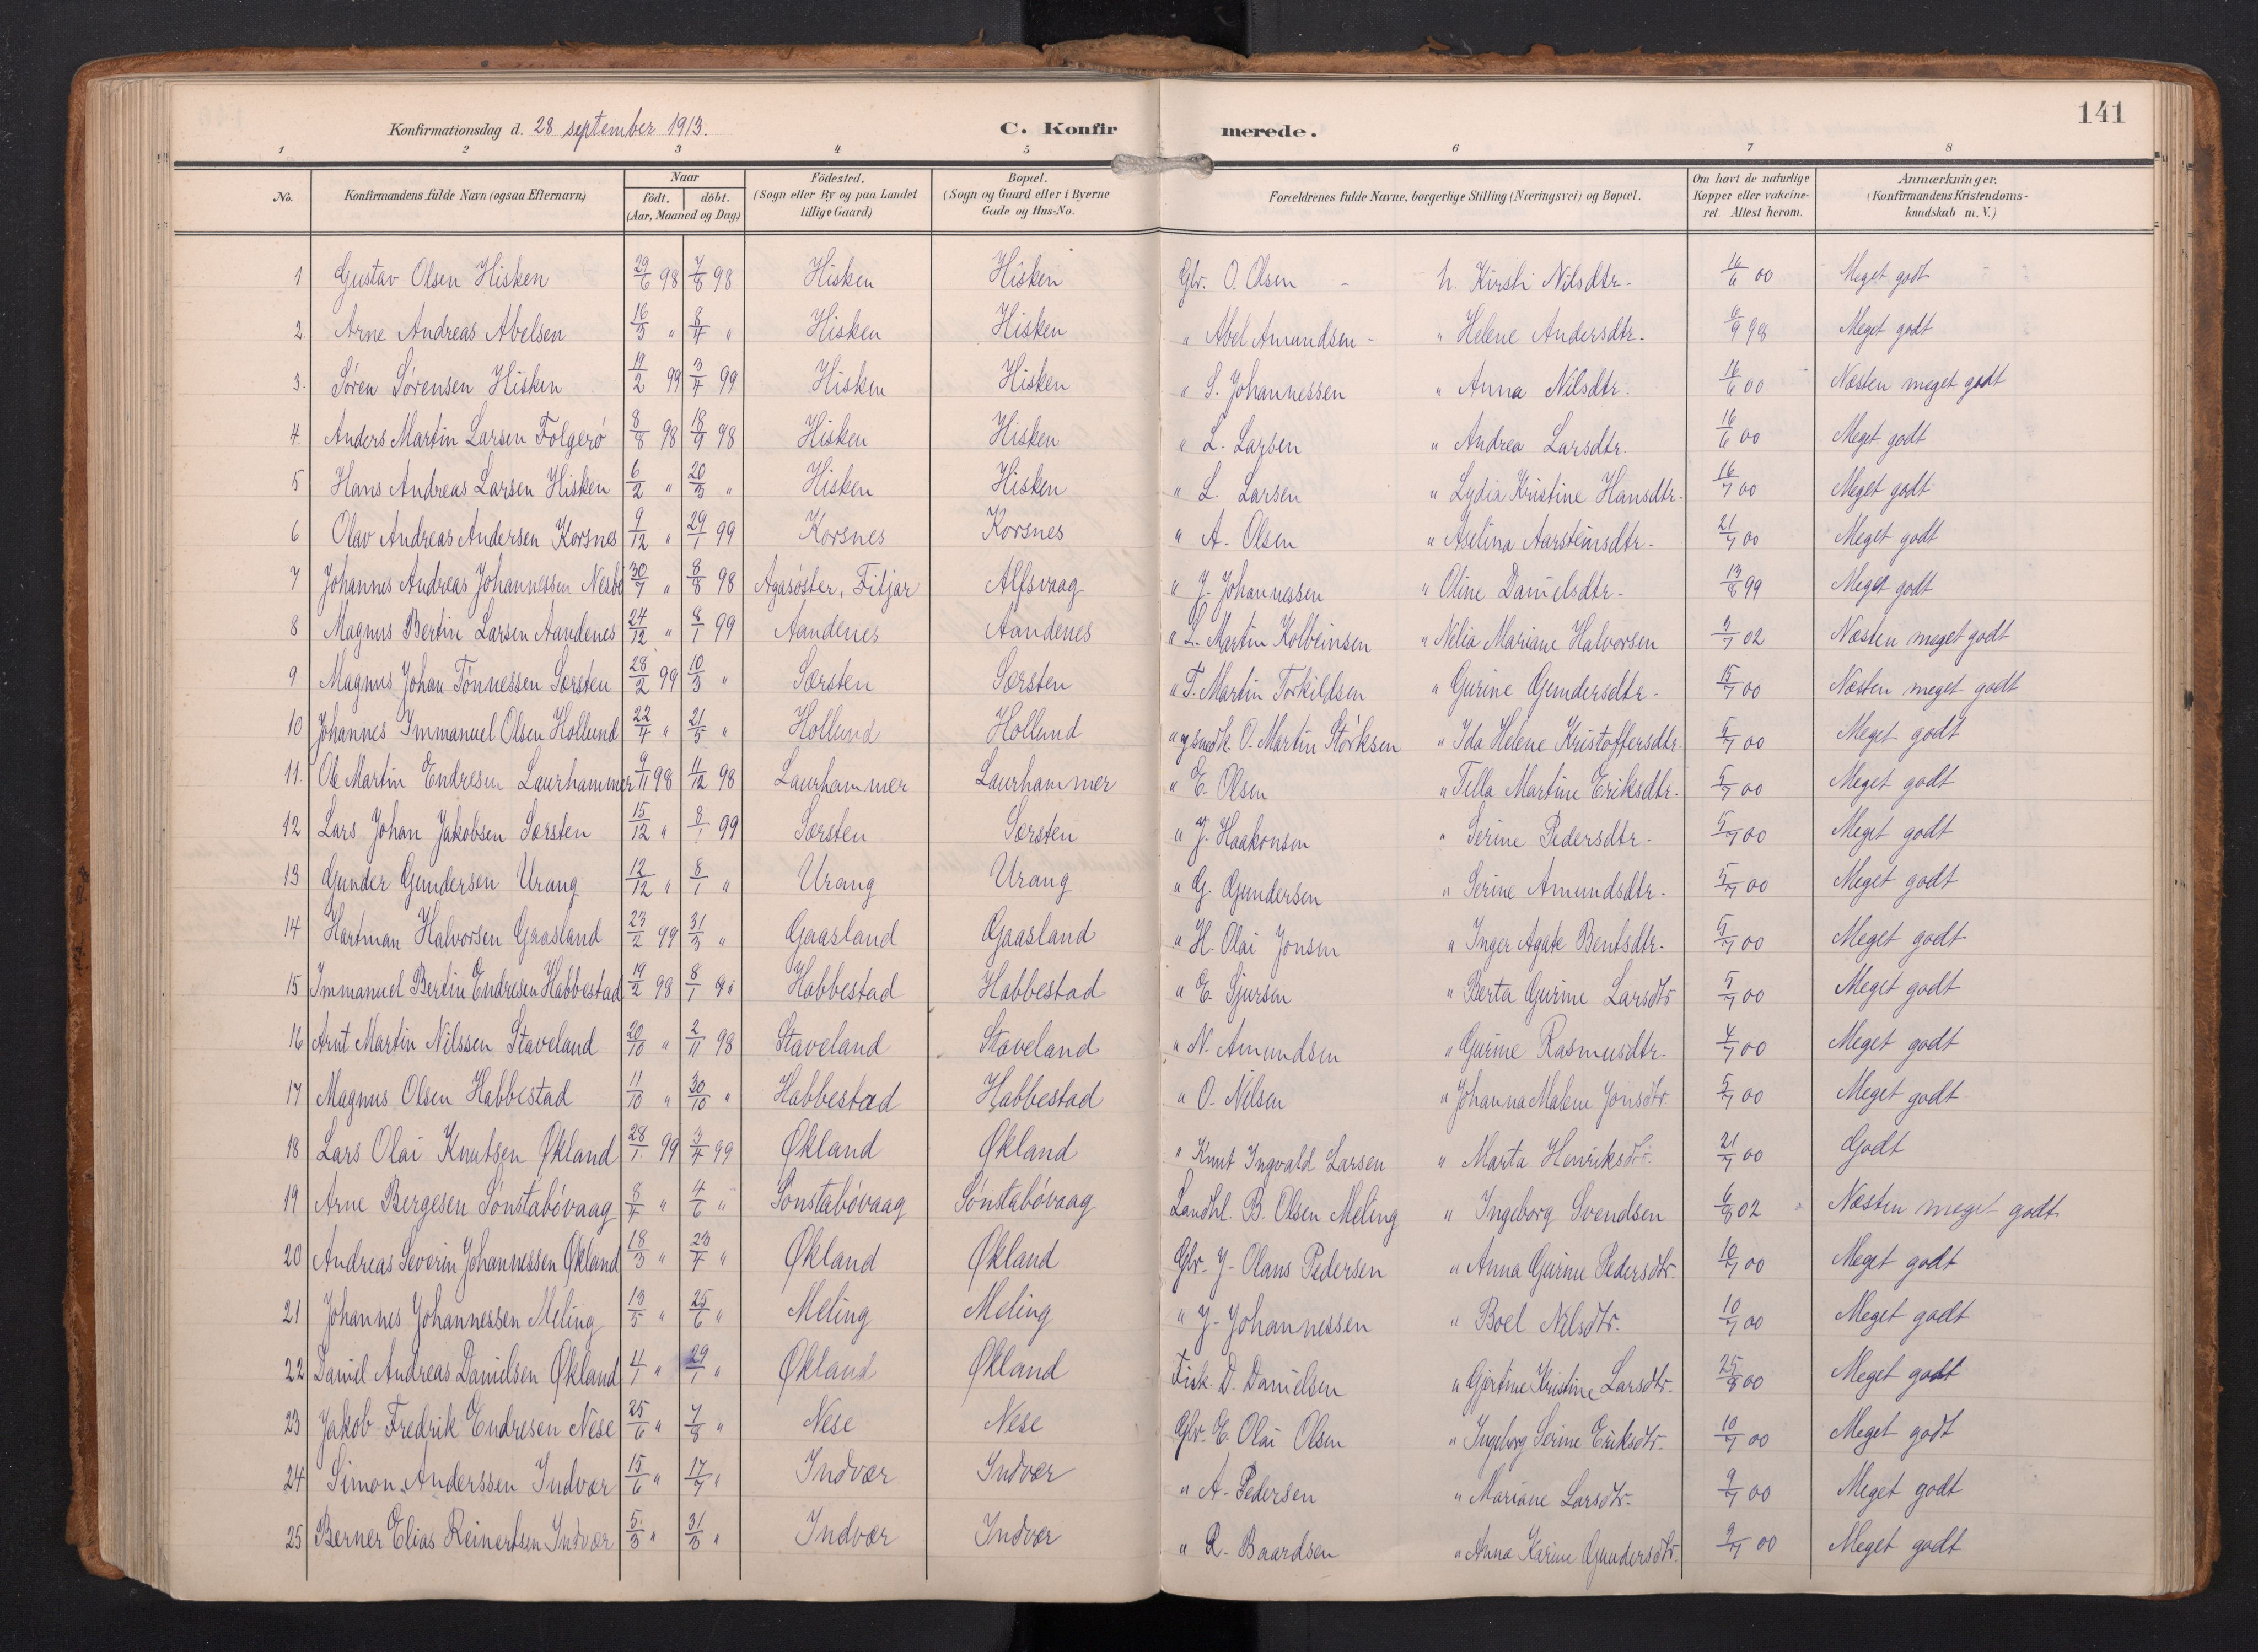 141
Konfirmationsdag d. 28 september 1913. C. Konfirmerede.
1 2 3 4 5 6 7 8
No. Konfirmandens fulde Navn (ogsaa Efternavn) Naar födt. döbt. (Aar, Maaned og Dag) Födested. (Sogn eller By og paa Landet tillige Gaard) Bopæl. (Sogn og Gaard eller i Byerne Gade og Hus-No. Forældrenes fulde Navne, borgerlige Stilling (Næringsvei) og Bopæl. Om havt de naturlige Kopper eller vakcineret. Attest herom. Anmærkninger. (Konfirmandens Kristendomskundskab m. V.)
1 Gustav Olsen Hisken 29/6 98 7/8 98 Hisken Hisken Gbr. O. Olsen - h. Kirsti Nilsdtr. 16/6 00 Meget godt
2 Arne Andreas Abelsen 16/3 " 8/4 " Hisken Hisken " Abel Amundsen - " Helene Andersdtr. 6/9 98 Meget godt
3. Søren Sørensen Hisken 19/2 99 3/4 99 Hisken Hisken " S. Johannessen " Anna Nilsdtr. 16/6 00 Næsten meget godt
4. Anders Martin Larsen Folgerø 8/8 98 18/9 98 Hisken Hisken " L. Larsen " Andrea Larsdtr. 16/6 00 Meget godt
5 Hans Andreas Larsen Hisken 6/2 " 20/3 " Hisken Hisken " L. Larsen " Lydia Kristine Hansdtr. 16/7 00 Meget godt
6 Olav Andreas Andersen Korsnes 9/12 " 29/1 99 Korsnes Korsnes " A. Olsen " Aselina Aarsteinsdtr. 21/7 00 Meget godt
7 Johannes Andreas Johannessen Nesbø 30/7 " 8/8 98 Agasøster, Fitjar Alfsvaag " J. Johannessen " Oline Danielsdtr. 13/8 99 Meget godt
8 Magnus Bertin Larsen Aandenes 24/12 " 8/1 99 Aandenes Aandenes " L. Martin Kolbeinsen " Nelia Mariane Halvorsen 9/7 02 Næsten meget godt
9 Magnus Johan Tønnessen Særsten 28/2 99 10/3 " Særsten Særsten " T. Martin Torkildsen " Gurine Gundersdtr. 15/7 00 Næsten meget godt
10 Johannes Immanuel Olsen Hollund 22/4 " 21/5 " Hollund Hollund " og smedk. O. Martin Størksen " Ida Helene Kristoffersdtr. 5/7 00 Meget godt
11. Ole Martin Endresen Laurhammer 9/11 98 11/12 98 Laurhammer Laurhammer " E. Olsen " Tella Martine Eriksdtr. 5/7 00 Meget godt
12 Lars Johan Jakobsen Særsten 15/12 " 8/1 99 Særsten Særsten " J. Haakonsen " Serine Pedersdtr. 5/7 00 Meget godt
13 Gunder Gundersen Urang 12/12 " 8/1 " Urang Urang " G. Gundersen " Serine Amundsdtr. 5/7 00 Meget godt
14 Hartman Halvorsen Gaasland 23/2 99 31/3 " Gaasland Gaasland " H. Olai Jonsen " Inger Agate Bentsdtr. 5/7 00 Meget godt
15 Immanuel Bertin Endresen Habbestad 19/2 98 8/1 Habbestad Habbestad " E. Sjursen " Berta Gurine Larsdtr 5/7 00 Meget godt
16 Arnt Martin Nilssen Staveland 20/10 " 2/11 98 Staveland Staveland " N. Amundsen " Gurine Rasmusdtr. 4/7 00 Meget godt
17 Magnus Olsen Habbestad 11/10 " 30/10 " Habbestad Habbestad " O. Nilsen " Johanna Malene Jonsdtr. 5/7 00 Meget godt
18 Lars Olai Knutsen Økland 28/1 99 3/4 99 Økland Økland " Knut Ingvald Larsen " Marta Henriksdtr. 21/7 00 Godt
19 Arne Bergesen Sønstabøvaag 8/4 " 4/6 " Sønstabøvaag Sønstabøvaag Landhl. B. Olsen Meling " Ingeborg Svendsen 6/8 02 Næsten meget godt
20 Andreas Severin Johannessen Økland 18/3 " 23/4 " Økland Økland Gbr. J. Olaus Pedersen " Anna Gurine Pedersdtr. 10/7 00 Meget godt
21 Johannes Johannessen Meling 13/5 " 25/6 " Meling Meling " J. Johannessen " Boel Nilsdtr. 10/7 00 Meget godt
22 Daniel Andreas Danielsen Økland 4/1 " 29/1 " Økland Økland Fisk. D. Danielsen " Gjertine Kristine Larsdtr. 25/8 00 Meget godt
23 Jakob Fredrik Endresen Nese 25/6 " 7/8 " Nese Nese Gbr. E. Olai Olsen " Ingeborg Serine Eriksdtr. 10/7 00 Meget godt
24 Simon Anderssen Indvær 15/6 " 17/7 " Indvær Indvær " A. Pedersen " Mariane Larsdtr. 9/7 00 Meget godt
25 Berner Elias Reinertsen Indvær 5/3 " 31/3 " Indvær Indvær " R. Baardsen " Anna Karine Gundersdtr. 9/7 00 Meget godt